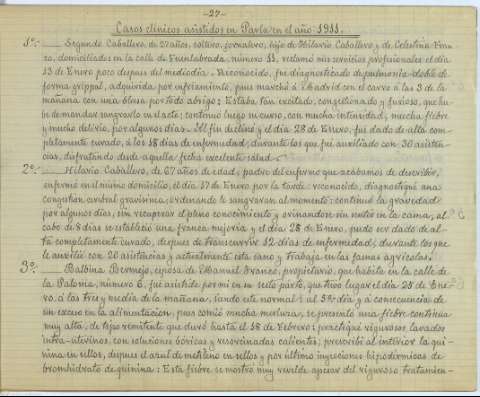 -27-
Casos clínicos asistidos en Parla en el año 1911.
1º:- Segundo Caballero, de 27 años, soltero, jornalero, hijo de Hilario Caballero y de Celestina
co, domiciliados en la calle de Fuenlabrada, número 11, reclamó mis servicios profesionales el día
13 de Enero poco despues del mediodía. Reconocido, fue diagnosticado de pulmonía doble de
forma grippal, adquirida por enfriamiento, pues marchó á Madrid con el carro á las 3 de la
mañana con una blusa por todo abrigo: Estaba tan excitado, congestionado y furioso, que hu-
be de mandar sangrarlo en el acto; continuó luego su curso, con mucha intensidad, mucha fiebre
y mucho delirio, por algunos días. Al fin declinó y el día 28 de Enero, fué dado de alta com-
pletamente curado, á los 15 días de enfermedad, durante los que fué auxiliado con 30 asisten-
cias, disfrutando desde aquella fecha excelente salud.
2º:- Hilario Caballero, de 67 años de edad, padre del enfermo que acabamos de describir,
enfermó en el mismo domicilio, el día 17 de Enero por la tarde: reconocido, diagnostiqué una
congestion cerebral gravísima; ordenando le sangraran al momento: continuó la gravedad
por algunos días, sin recuperar el pleno conocimiento y orinandose sin sentir en la cama, al
cabo de 8 días se estableció una franca mejoría y el día 28 de Enero, pudo ser dado de al-
ta completamente curado, despues de transcurrir 12 días de enfermedad, durante los que
le auxilié con 20 asistencias y actualmente está sano y trabaja en las faenas agrícolas.
3º:- Balbina Bermejo, esposa de Manuel Franco, propietario, que habita en la calle de
la Paloma, número 6, fué asistida por mí en su parto, que tuvo lugar el día 25 de Ene-
ro, á las tres y media de la mañana, siendo este normal: al 3er día y á consecuencia de
un exceso en la alimentacion, pues comió mucha merluza, se presentó una fiebre continua
muy alta, de tipo remitente que duró hasta el 18 de Febrero: practiqué rigurosos lavados
intra-uterinos, con soluciones bóricas y resorcinadas calientes; prescribí al interior la qui-
nina en sellos, despues el azul de metileno en sellos y por último inyecciones hipodérmicas de
bromhidrato de quinina: Esta fiebre se mostró muy rebelde apesar del riguroso tratamien-